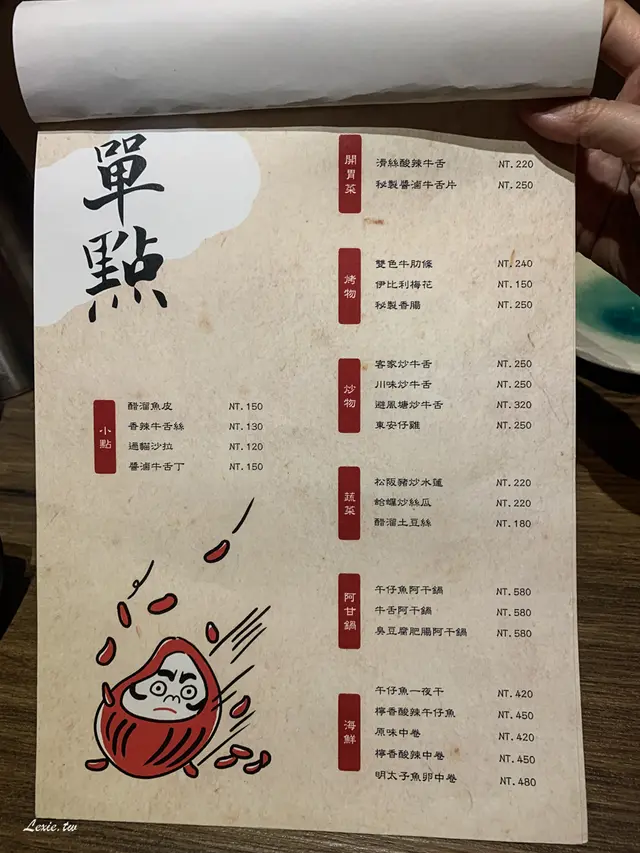 單點
小點
醋溜魚皮 NT.150
香辣牛舌絲 NT.130
過貓沙拉 NT.120
醬滷牛舌丁 NT.150
開胃菜
滑絲酸辣牛舌 NT.220
秘製醬滷牛舌片 NT.250
烤物
雙色牛肋條 NT.240
伊比利梅花 NT.150
秘製香腸 NT.250
炒物
客家炒牛舌 NT.250
川味炒牛舌 NT.250
避風塘炒牛舌 NT.320
東安仔雞 NT.250
蔬菜
松阪豬炒水蓮 NT.220
蛤蠣炒絲瓜 NT.220
醋溜土豆絲 NT.180
阿甘鍋
午仔魚阿干鍋 NT.580
牛舌阿干鍋 NT.580
臭豆腐肥腸阿干鍋 NT.580
海鮮
午仔魚一夜干 NT.420
檸香酸辣午仔魚 NT.450
原味中卷 NT.420
檸香酸辣中卷 NT.450
明太子魚卵中卷 NT.480
Lexie.tw